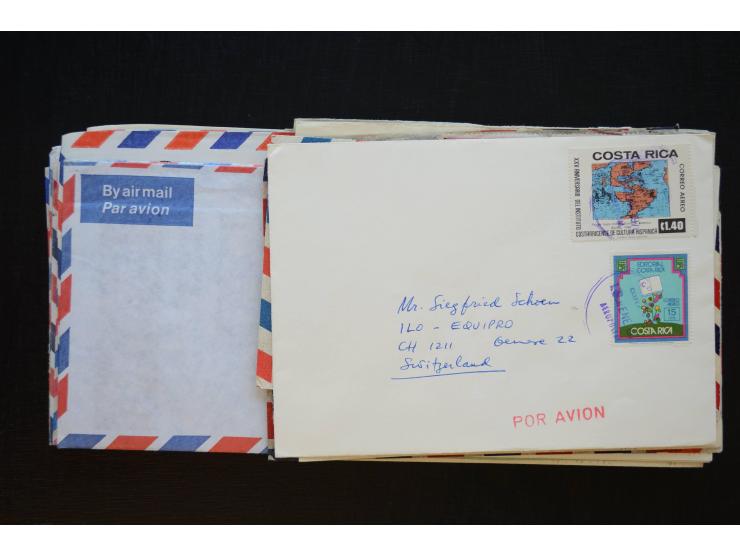 By air mail
Par avion
COSTA RICA
XXV ANIVERSARIO DEL INSTITUTO
COSTARRICENSE DE CULTURA HISPANICA
CORREO AEREO
₡1.40
EDITORIAL
COSTA RICA
15
COSTA RICA
ENE
Mr. Siegfried Schoen
ILO - EQUIPRO
CH 1211 Geneve 22
Switzerland
POR AVION